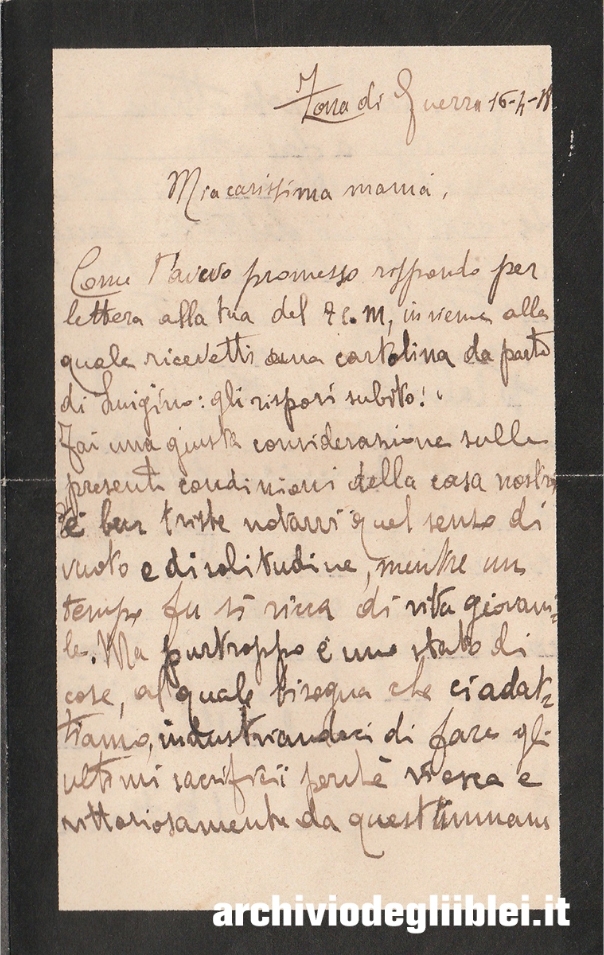 Zona di Guerra 16-4-18
Mia carissima mamá,
Come t'avevo promesso rispondo per
lettera alla tua del 7 c. m, insieme alla
quale ricevetti una cartolina da parte
di Luigino: gli risposi subito!
Fai una giusta considerazione sulla
presente condizioni della casa nostra
é ben triste notarvi quel senso di
vuoto e di solitudine, mentre un
tempo fu sì ricca di vita giovani=
le. Ma purtroppo é uno stato di
cose, al quale bisogna che ci adat=
tiamo, industriandoci di fare gli
ultimi sacrifici perchè si esca e
vittoriosamente da quest'immane
archiviodegliiblei.it